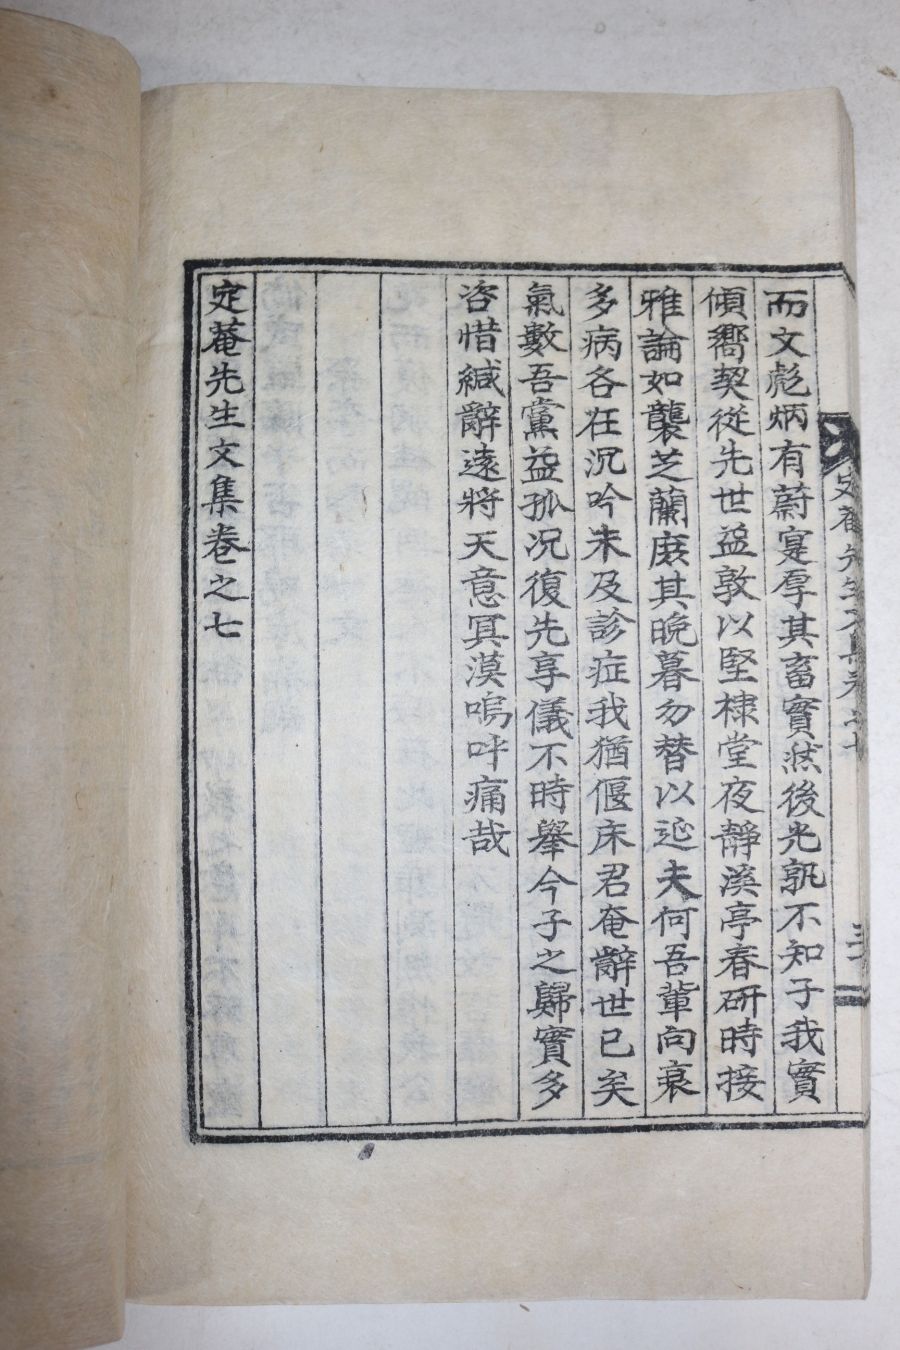 而文彪炳有蔚寔厚其畜實然後光孰不知子我實
傾嚮契從先世益敦以堅棣堂夜靜溪亭春研時接
雅論如襲芝蘭庶其晩暮勿替以延夫何吾輩向衰
多病各在沉吟未及診症我猶偃床君奄辭世已矣
氣數吾黨益孤况復先享儀不時舉今子之歸實多
咨惜緘辭遠將天意冥漠嗚呼痛哉
定菴先生文集卷之七